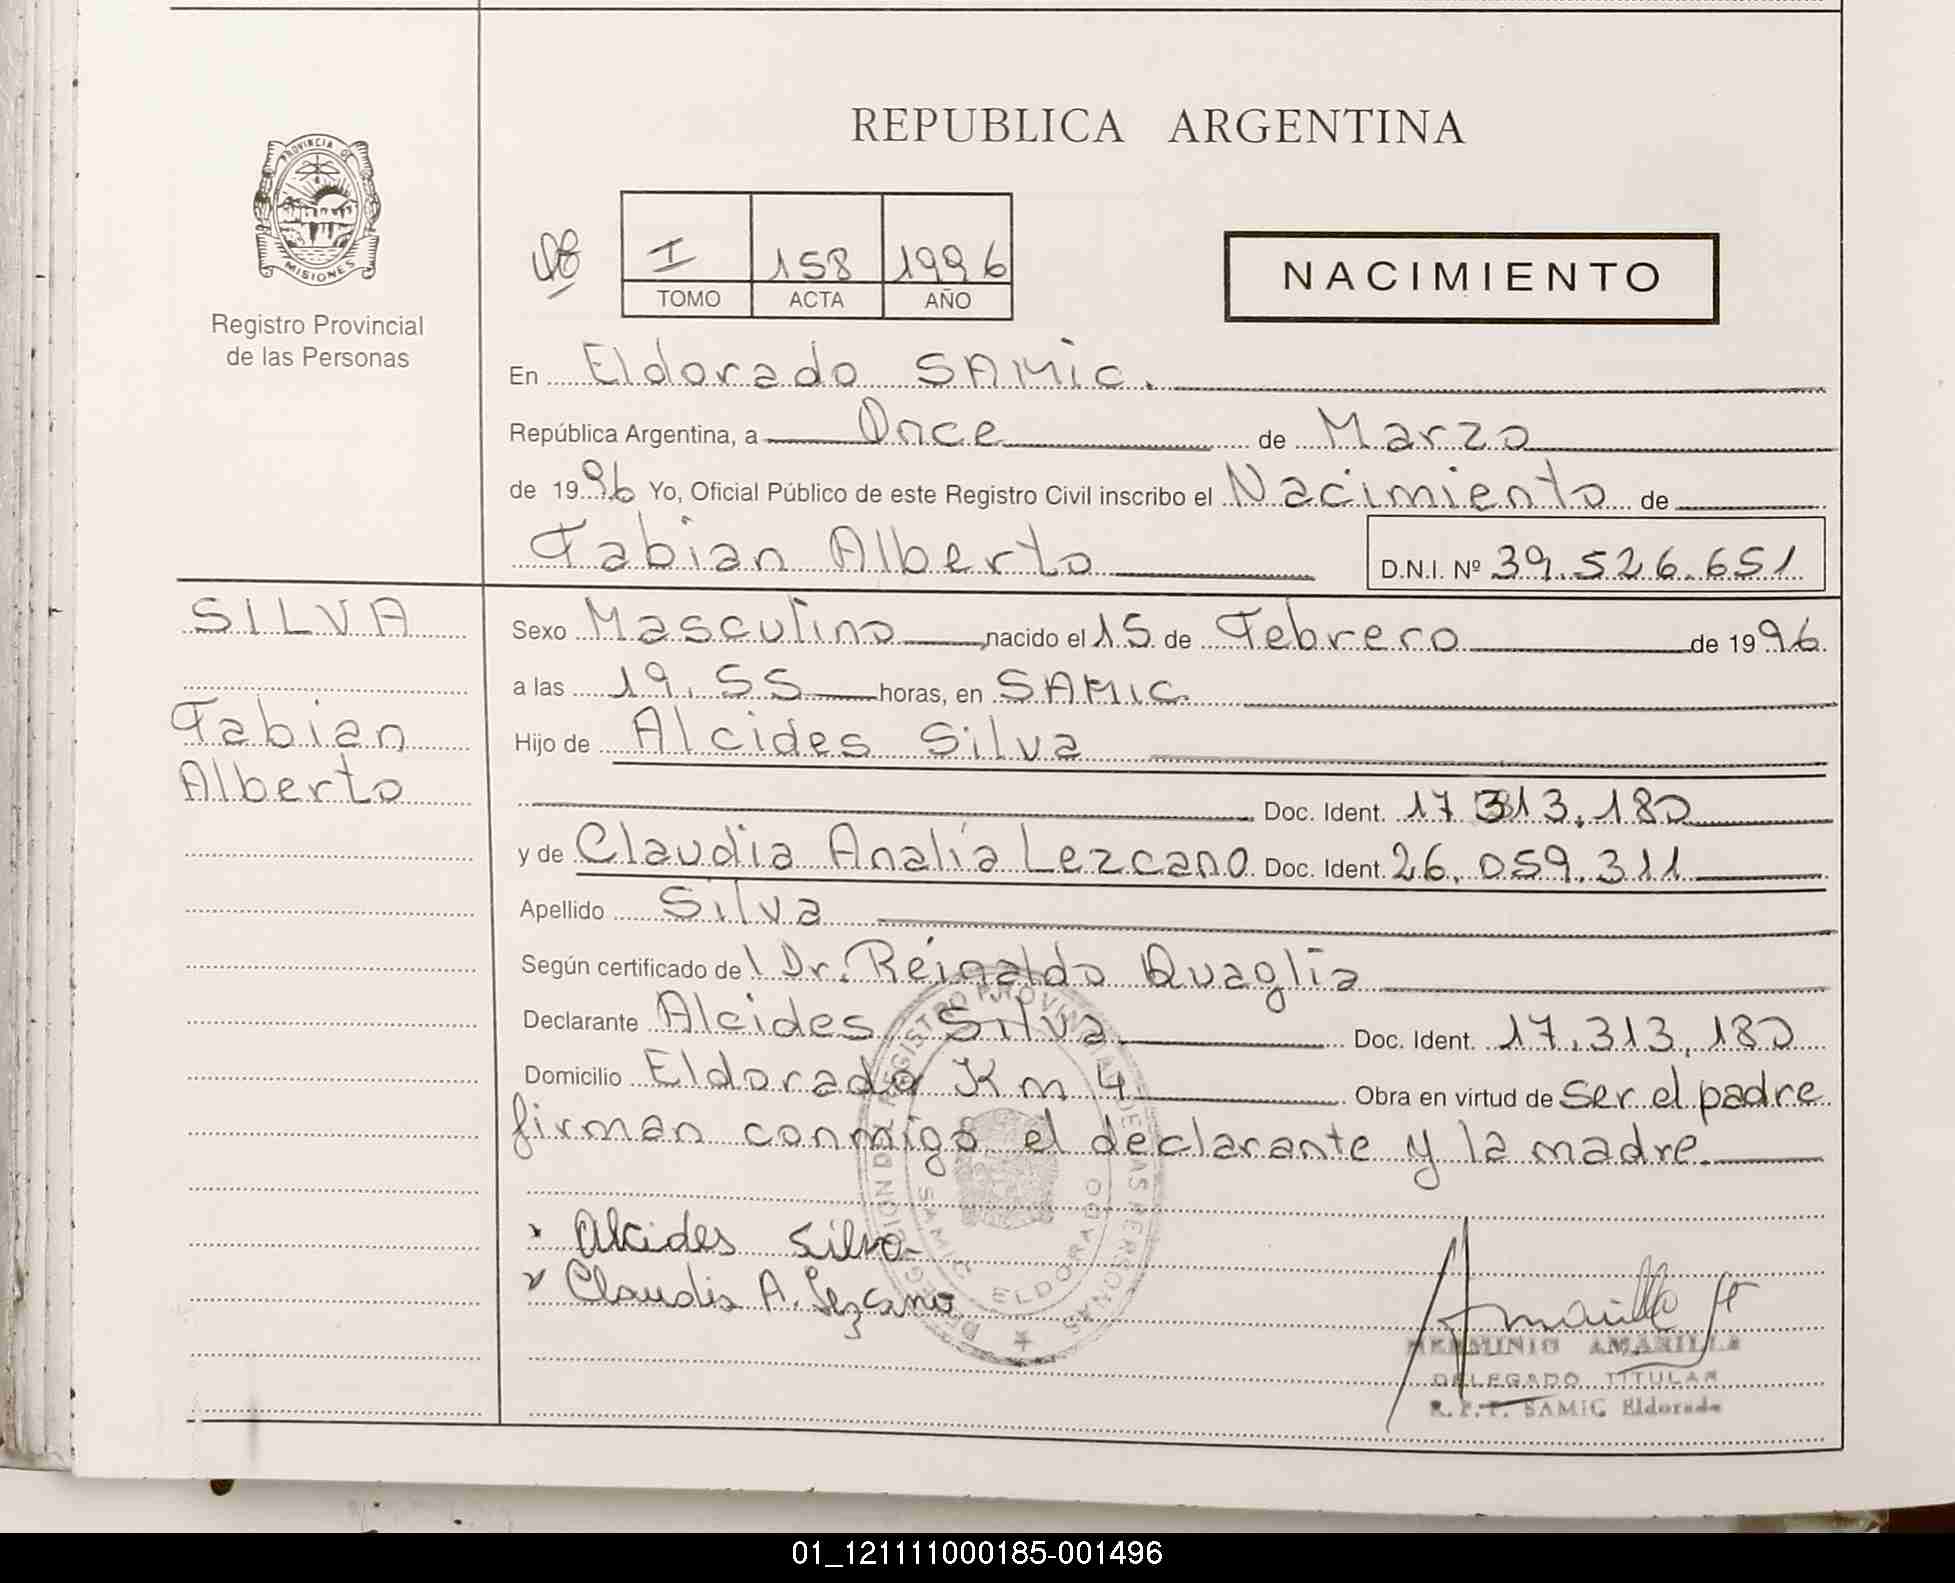 REPUBLICA ARGENTINA
PROVINCIA DE
MISIONES
Registro Provincial
de las Personas
I 158 1996
TOMO ACTA AÑO
NACIMIENTO
En Eldorado SAMic.
República Argentina, a Once de Marzo
de 1996 Yo, Oficial Público de este Registro Civil inscribo el Nacimiento de
Fabian Alberto D.N.I. Nº 39.526.651
SILVA
Fabian
Alberto
Sexo Masculino nacido el 15 de Febrero de 1996
a las 19.55 horas, en SAMIC.
Hijo de Alcides Silva
Doc. Ident. 17 313.180
y de Claudia Analía Lezcano Doc. Ident. 26.059.311
Apellido Silva
Según certificado del Dr. Reinaldo Quaglia
Declarante Alcides Silva Doc. Ident. 17.313.180
Domicilio Eldorado Km 4 Obra en virtud de ser el padre
firman conmigo el declarante y la madre.
Alcides Silva
Claudia A. Lezcano
SAMIC ELDORADO
Amarilla
HERMINIO AMARILLA
DELEGADO TITULAR
R.P.P. SAMIC Eldorado
01_121111000185-001496